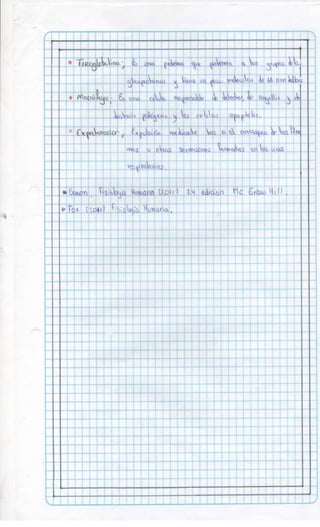 • Tiroglobulina; Es una proteína que pertenece a los grupos de la
glucoproteínas y tiene un peso molecular de
• Macrófago; Es una célula responsable de detectar, de engullir y de
destruir patógenos y las células apoptoticas.
• Expectoracion; Expulsión mediante tos o el carraspeo de las flemas
u otras secreciones formadas en las vías
respiratorias.
▸ Ganon, Fisiología Humana (2011) 24 edición Mc Graw Hill.
▸ Fox (2011) Fisiología Humana.